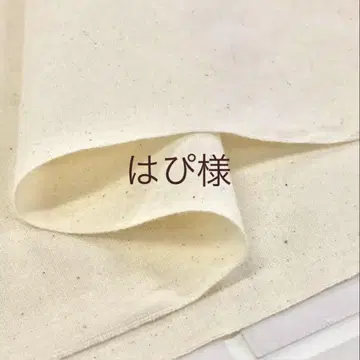 はぴ様